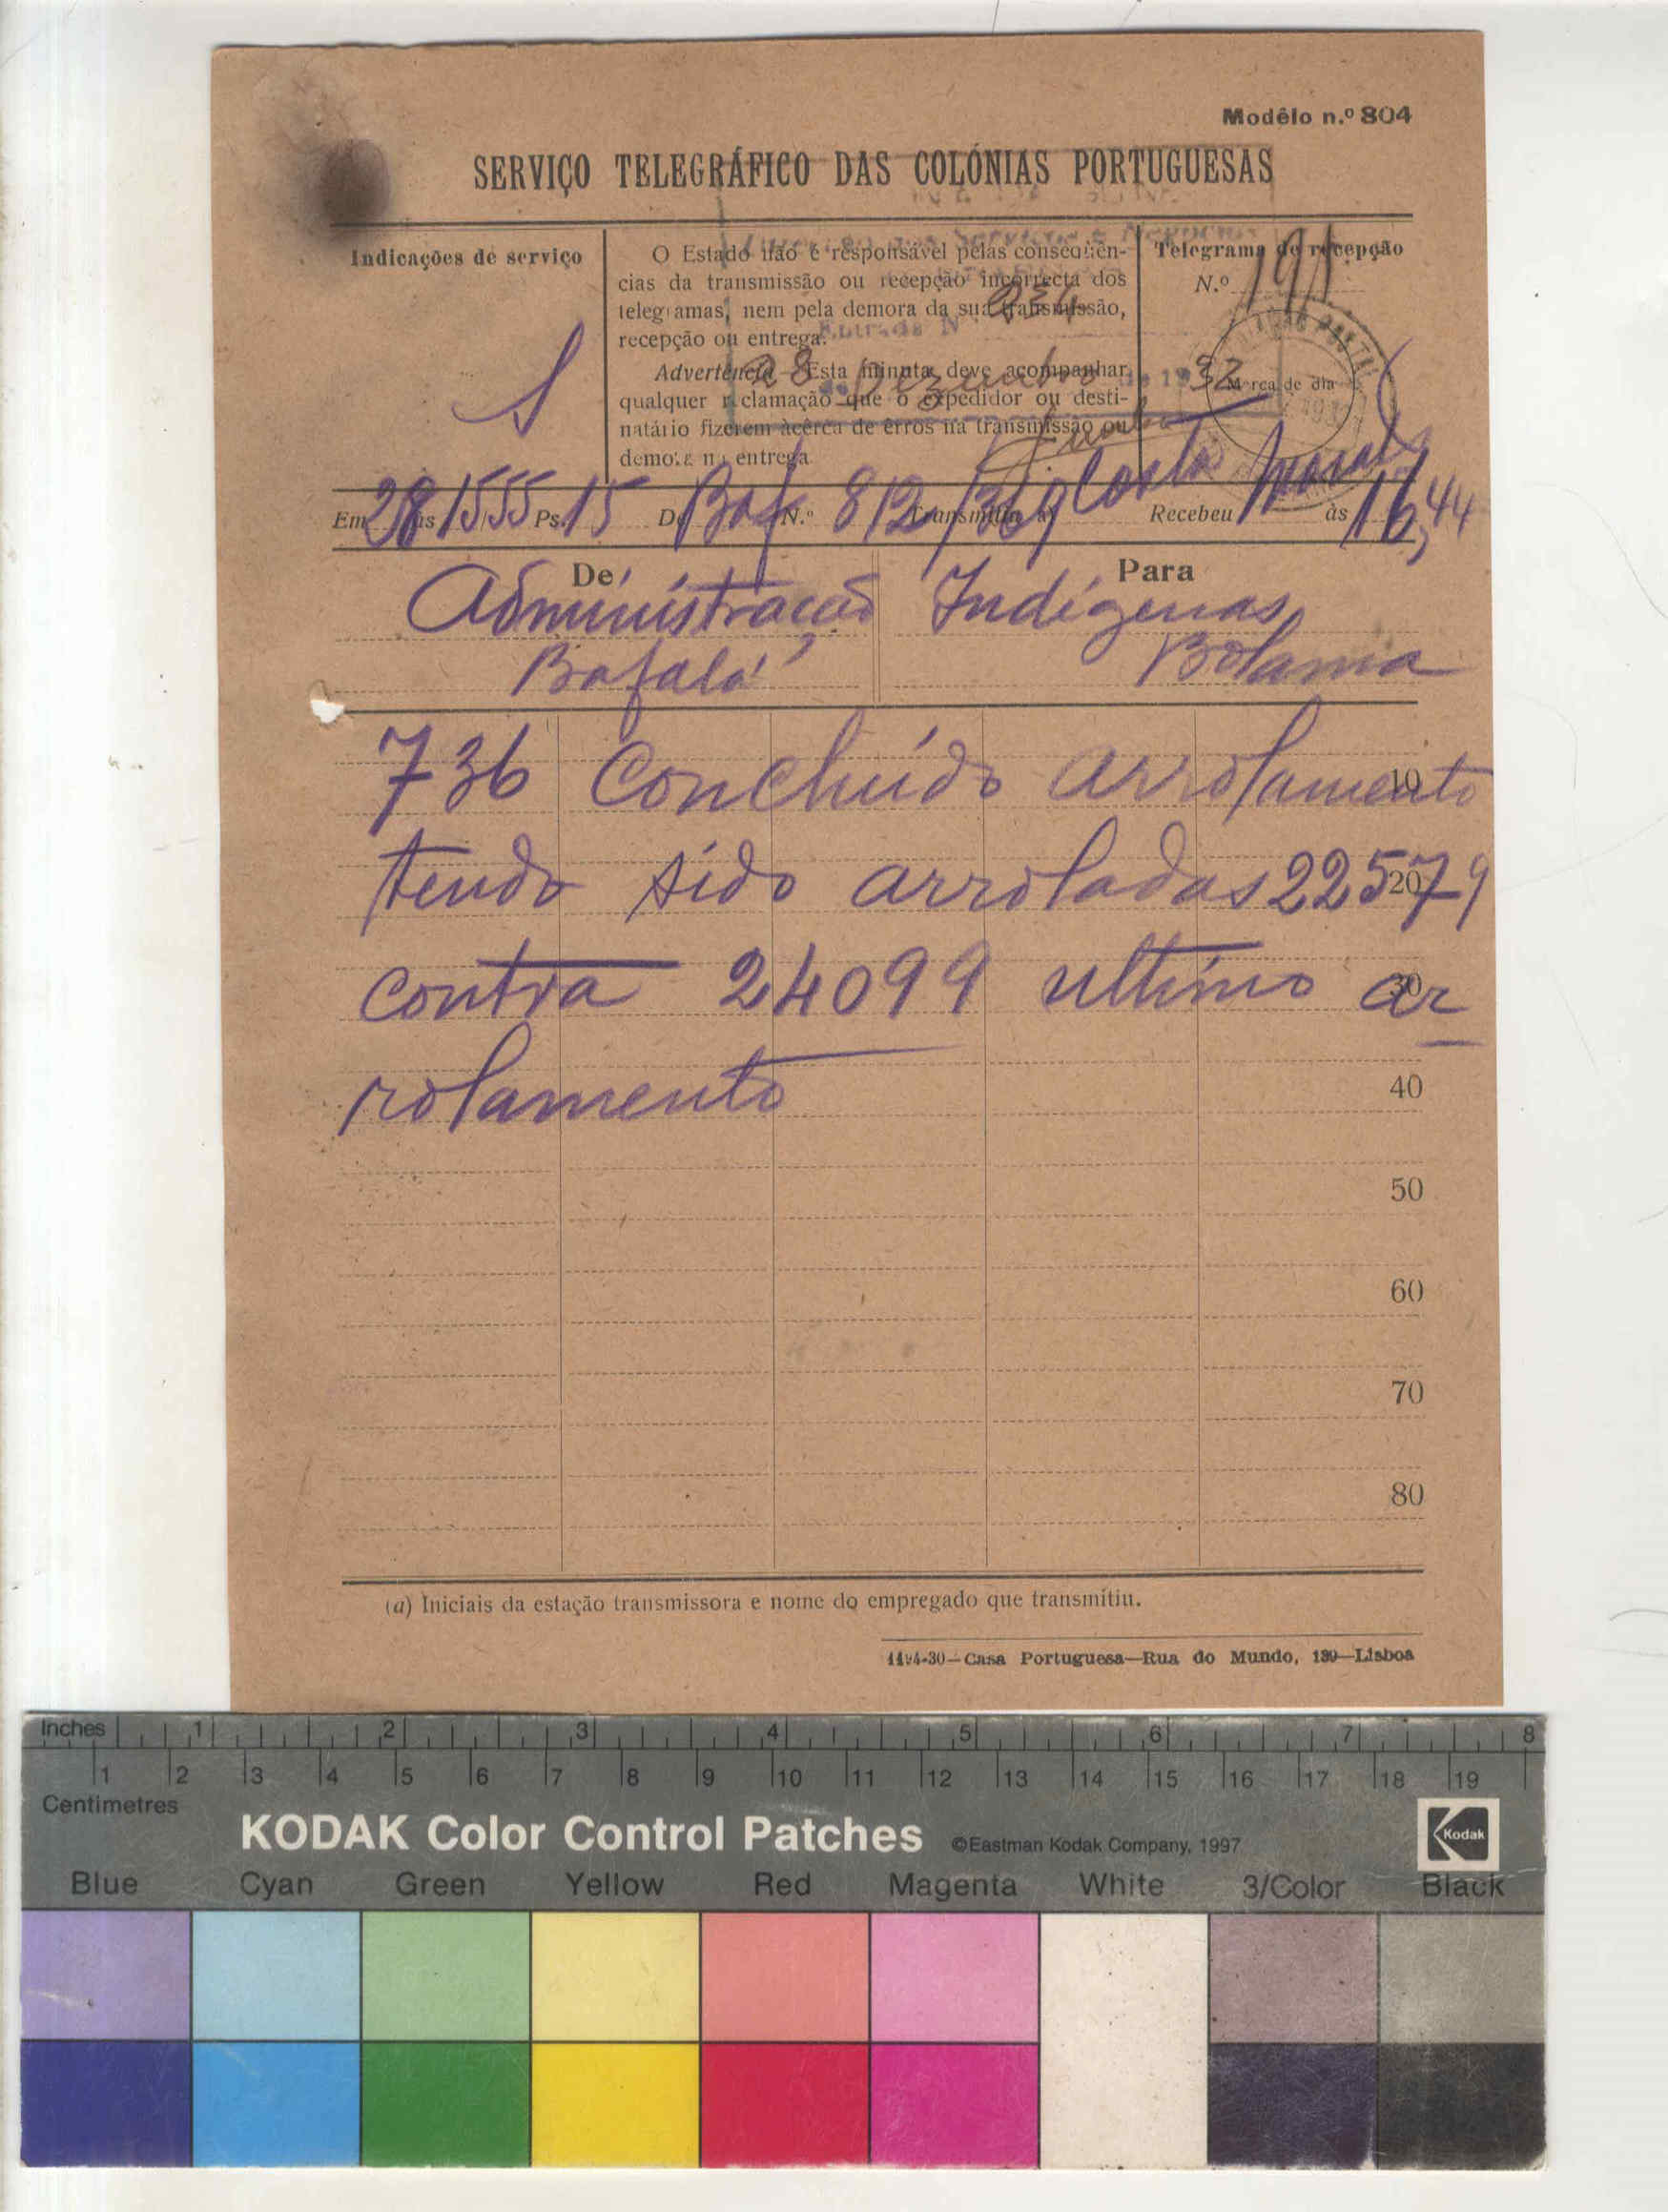 Modêlo n.º 804
SERVIÇO TELEGRÁFICO DAS COLÓNIAS PORTUGUESAS
Indicações de serviço
S
O Estado não é responsável pelas conseqüên-
cias da transmissão ou recepção incorrecta dos
telegramas, nem pela demora da sua transmissão,
recepção ou entrega.
Advertência—Esta minuta deve acompanhar
qualquer reclamação que o expedidor ou desti-
natário fizerem àcêrca de erros na transmissão ou
demora na entrega
Entrada N 934
28 de Dezembro de 1932
Telegrama de recepção
N.º 191
Marca de dia
Em 28 às 1555 Ps. 15 De Baf N.º 812 Transmitiu Costa Recebeu às 16,44
De
Administração
Bafatá
Para
Indígenas
Bolama
736 Concluído arrolamento
tendo sido arroladas 22579
contra 24099 ultimo ar
rolamento
10
20
30
40
50
60
70
80
(a) Iniciais da estação transmissora e nome do empregado que transmitiu.
Casa Portuguesa—Rua do Mundo, 139—Lisboa
Inches 1 2 3 4 5 6 7 8
1 2 3 4 5 6 7 8 9 10 11 12 13 14 15 16 17 18 19
Centimetres
KODAK Color Control Patches ©Eastman Kodak Company, 1997 Kodak
Blue Cyan Green Yellow Red Magenta White 3/Color Black